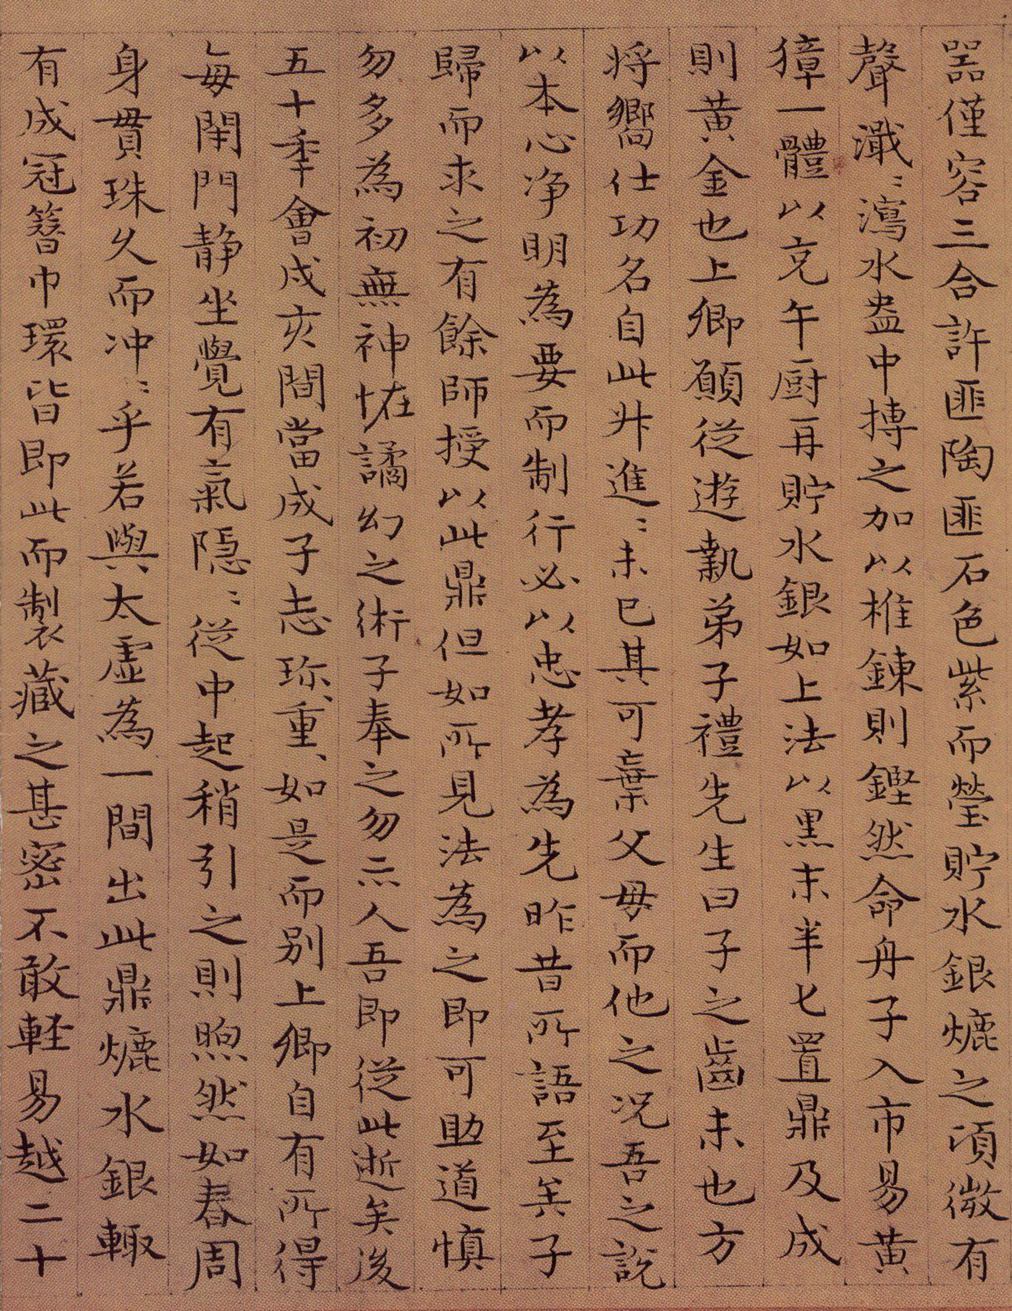 器僅容三合許匪陶匪石色紫而瑩貯水銀熝之頃微有
聲濈〻瀉水盎中摶之加以椎鍊則鏗然命舟子入市易黄
獐一體以充午厨再貯水銀如上法以黒末半匕置鼎及成
則黄金也上卿願從遊執弟子禮先生曰子之齒未也方
将嚮仕功名自此升進〻未已其可棄父母而他之况吾之説
以本心净明為要而制行必以忠孝為先昨昔所語至矣子
歸而求之有餘師授以此鼎但如所見法為之即可助道慎
勿多為初無神恠譎幻之術子奉之勿示人吾即從此逝矣後
五十季會戌亥間當成子志珎、重、如是而别上卿自有所得
每閑門静坐覺有氣隠〻從中起稍引之則煦然如春周
身貫珠久而冲〻乎若與太虚為一間出此鼎熝水銀輙
有成冠簮巾環皆即此而製藏之甚密不敢軽易越二十